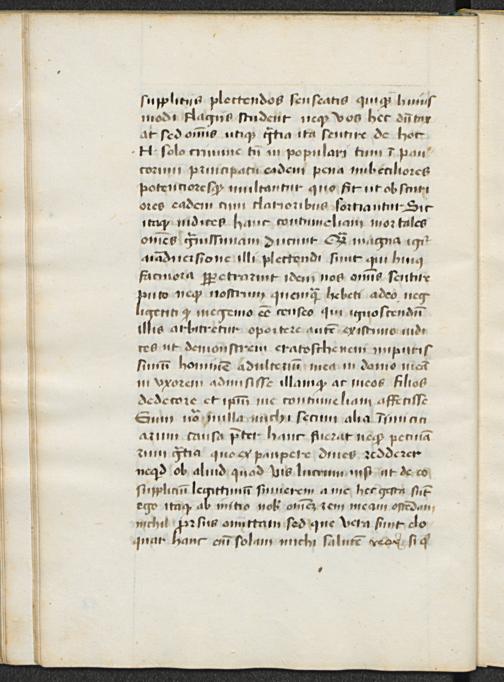 supplitiis plectendos senseatis quiqȝ huius
modi flagiis student neqȝ vos hec dūtax
at sed omīs utiqȝ gr̄tia ita sentire de hoc
N solo crimine tū in populari tum ī pau
corum principatu eadem pena imbeciliores
potentioresqȝ multantur quo fit ut obscuri
ores eadem cum clarioribus sortiantur Sic
itaqȝ iudices hanc contumeliam mortales
omēs gͣuissimam ducunt Qͣ magna igͥ
aīaduersione illi plectendi sunt qui huiqȝ
facinora ꝑpetrarunt idem uos omīs sentire
puto neqȝ nostrum quemqͣ hebeti adeo neg
ligenti qȝ ingenio eē censeo qui ignoscendū
illis arbitretur oportere autē existimo iudi
ces ut demonstrem eratosthenem impuris
simū hominē adulterium mea in domo meā
in vxorem admisisse illamqȝ ac meos filios
dedecore et ipsū me contumeliam affecisse
Cum uͦ nulla michi secum alia īimiciti
arum causa p̄ter hanc fuerat neqȝ pecuīa
rum gr̄tia quo ex paupere diues redderer
neqȝ ob aliud quod vis lucrum nisi ut de eo
supplicium legittimum sumerem a me hec gesta sūt
ego itaqȝ ab initio nob̄ omēȝ rem meam ostēdam
nichil ꝓrsus omittam sed que vera sunt elo
quar hanc em̄ solam michi salutē reor si qͣ